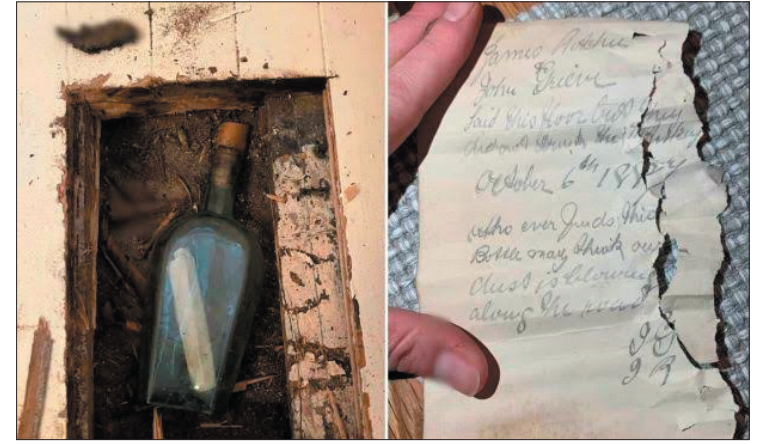 James Ritchie
John Grieve
laid this floor but they
did not drink the whisky
October 6th
who ever finds this
Bottle may think our
dust is blowing
along the road
J G
J R